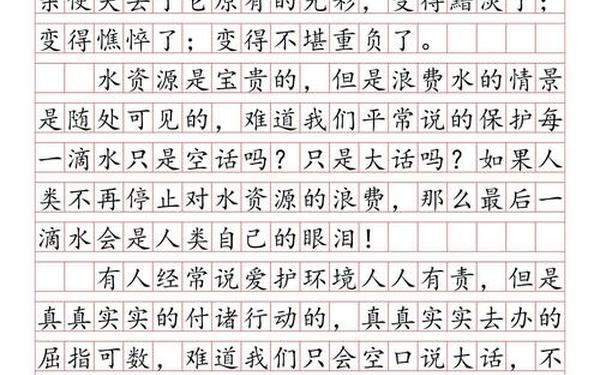 亲使失去了它原有的光彩，变得黯淡了；
变得憔悴了；变得不堪重负了。
水资源是宝贵的，但是浪费水的情景
是随处可见的，难道我们平常说的保护每
一滴水只是空话吗？只是大话吗？如果人
类不再停止对水资源的浪费，那么最后一
滴水会是人类自己的眼泪！
有人经常说爱护环境人人有责，但是
真真实实的付诸行动的，真真实实去办的
屈指可数，难道我们只会空口说大话，不